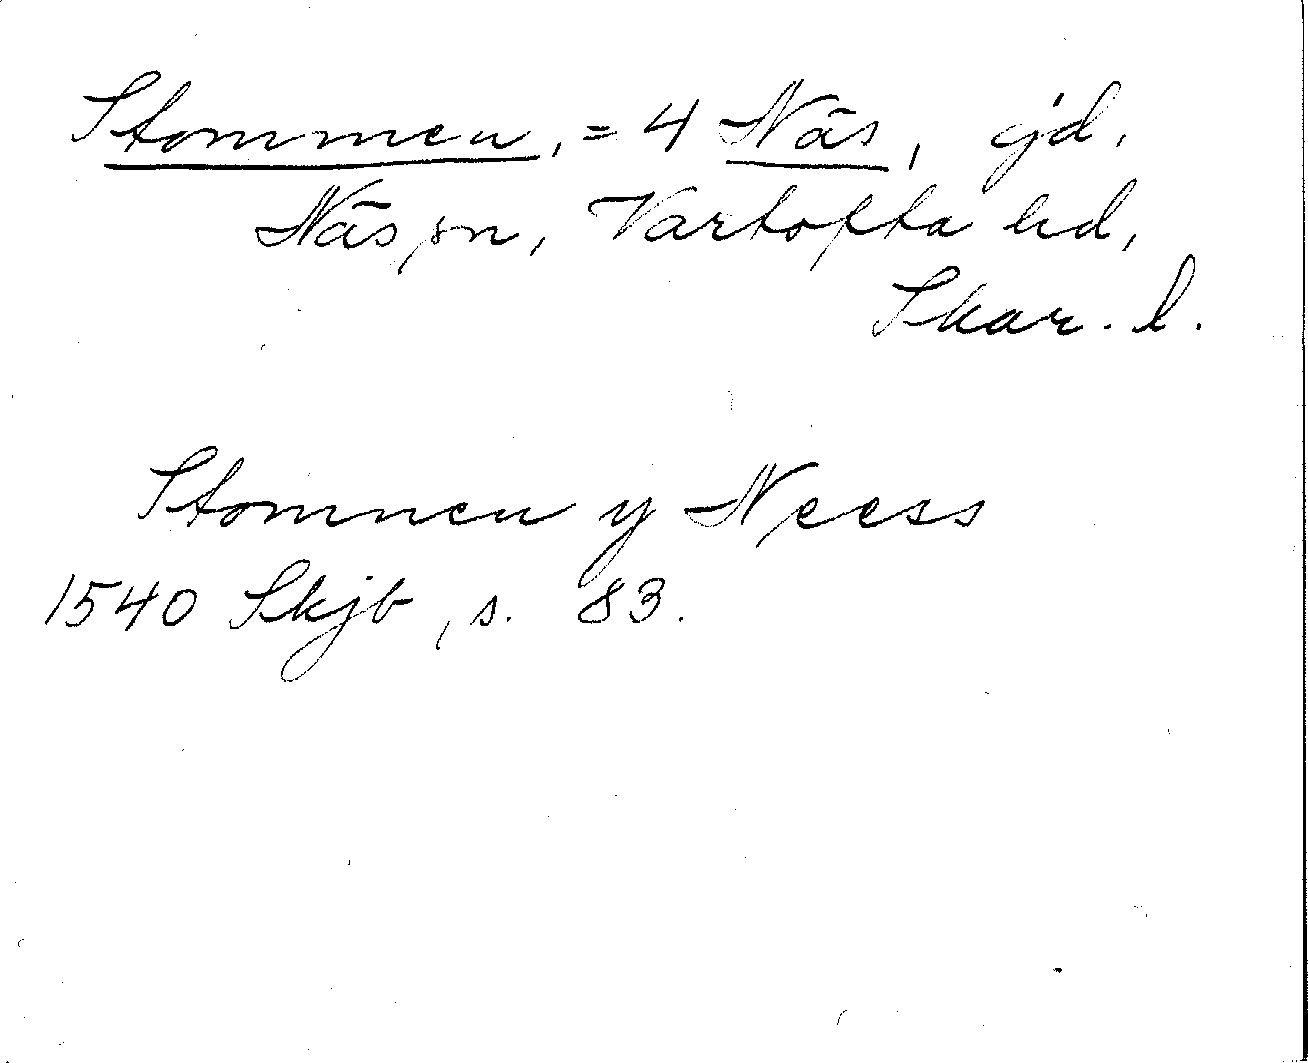 Stommen, = 4 Näs, jd.
Näs sn, Vartofta hd,
Skar. l.
Stomnen y Neess
1540 Skjb, s. 83.